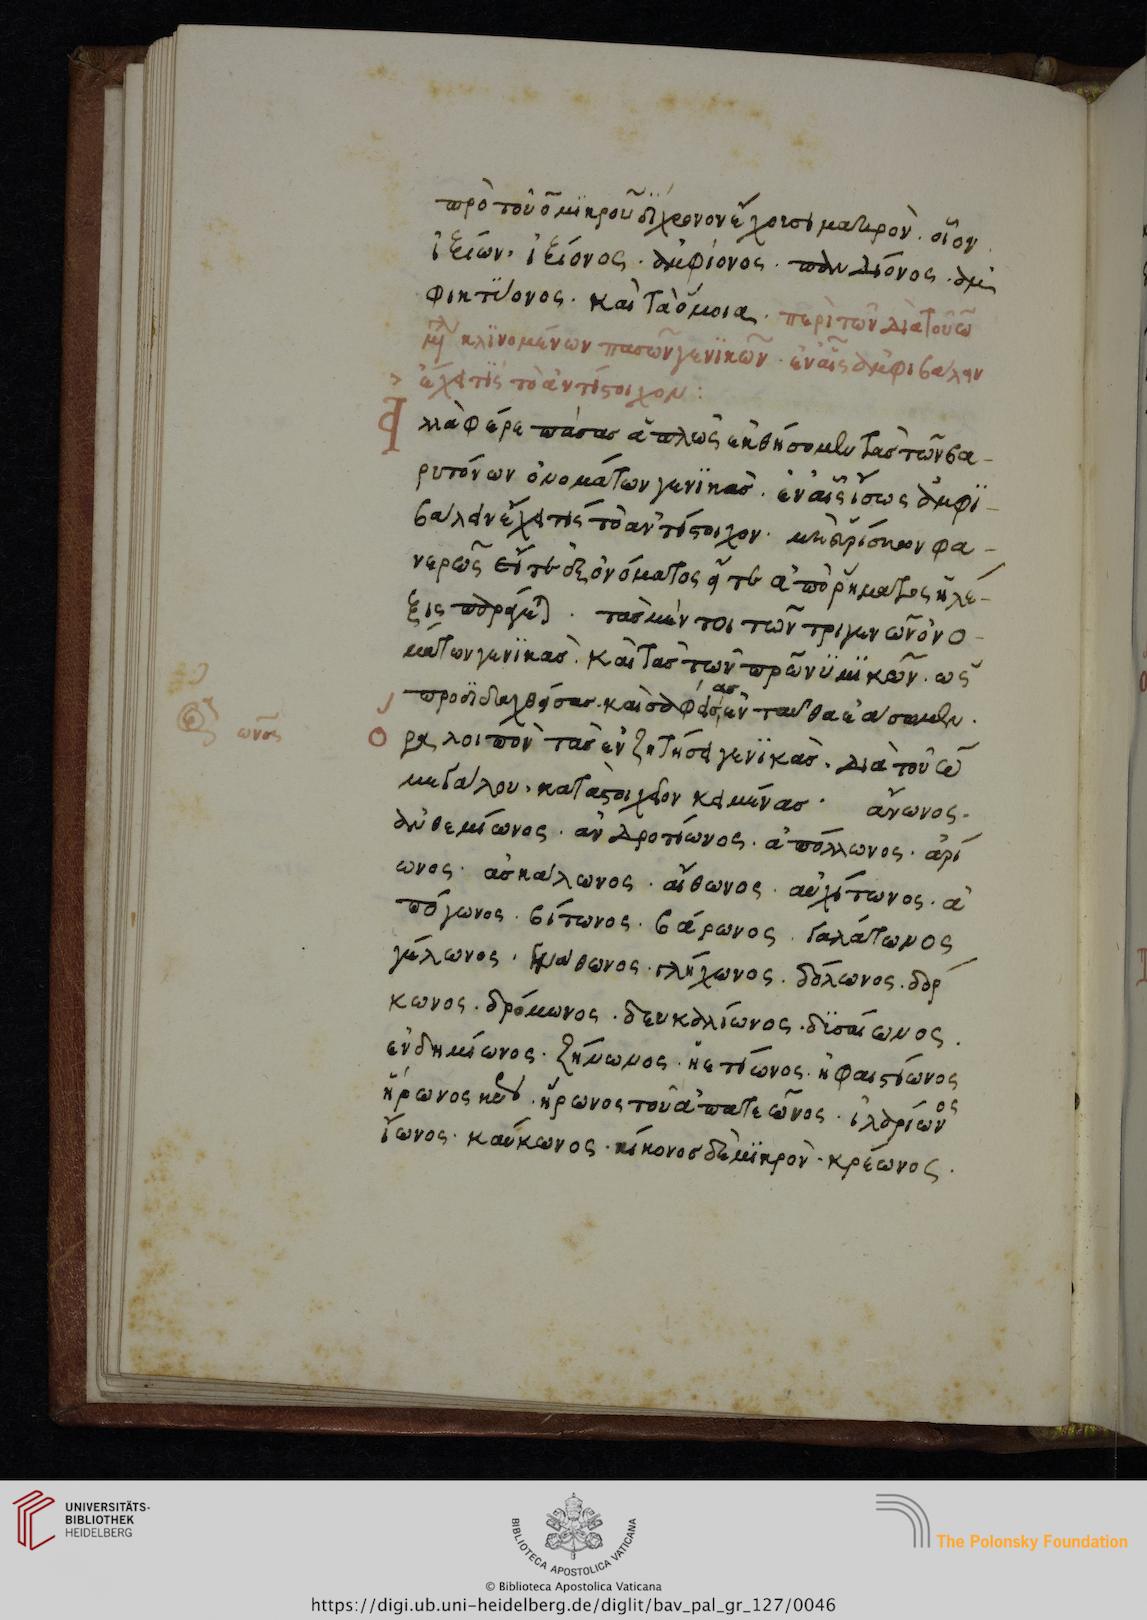 πρὸ τοῦ ο μϊκροῦ δίχρονον ἔχουσι μακρὸν. οἷον
ἰξίων. ἰξίονος. ἀμφίονος. πανδιόνος. ἀμ
φικτύονος. καὶ τὰ ὅμοια. περὶ τῶν διὰ τοῦ ω
κλϊνομένων πασῶν γενϊκῶν. ἐν αἷς ἀμφιβαλεῖν
ἔχει τίς τὸ ἀντίστοιχον:
φέρε πάσας ἁπλῶς ἐκθήσομεν τὰς τῶν βα-
ρυτόνων ὀνομάτων γενϊκὰς. ἐν αἷς ἴσως ἀμφϊ-
βαλεῖν ἔχει τίς τὸ ἀντίστοιχον. μὴ εὑρίσκων φα-
νερῶς εἴτε ἐξ ὀνόματος εἴτε ἀπὸ ῥήματος ἡ λέ-
ξις. τὰς μέν τοι τῶν τριγενῶν ὀνο-
μάτων γενϊκὰς. καὶ τὰς τῶν πρωνυμϊκῶν. ὡς
προδϊδαχθείσας καὶ σαφεῖς ἐνταῦθα ἐάσωμεν.
λοιπὸν τὰς ἐν ζητήσει γενϊκὰς. διὰ τοῦ ω
μεγάλου. κατὰ στοιχεῖον κειμένας. ἄνωνος.
ἀνθεμίωνος. ἀνδροτίωνος. ἀπόλλωνος. ἀρί
ωνος. ἀσκάλωνος. αἴθωνος. αὐχίτωνος. ἀ
πόγωνος. βίτωνος. βάρωνος. γαλάτωνος
γέλωνος. γνάθωνος. γλήχωνος. δόλωνος. δόρ
κωνος. δρόμωνος. δευκαλίωνος. δϊσαίωνος.
ἐνδημίωνος. ζήνωνος. ἠετίωνος. ἡφαιστίωνος
ἥρωνος. ἥρωνος τοῦ ἀπατεῶνος. ἰλαρίωνος
ἴωνος. καύκωνος. κίκονος δὲ μϊκρὸν. κρέωνος.
UNIVERSITÄTS-
BIBLIOTHEK
HEIDELBERG
BIBLIOTECA APOSTOLICA VATICANA
The Polonsky Foundation
© Biblioteca Apostolica Vaticana
https://digi.ub.uni-heidelberg.de/diglit/bav_pal_gr_127/0046